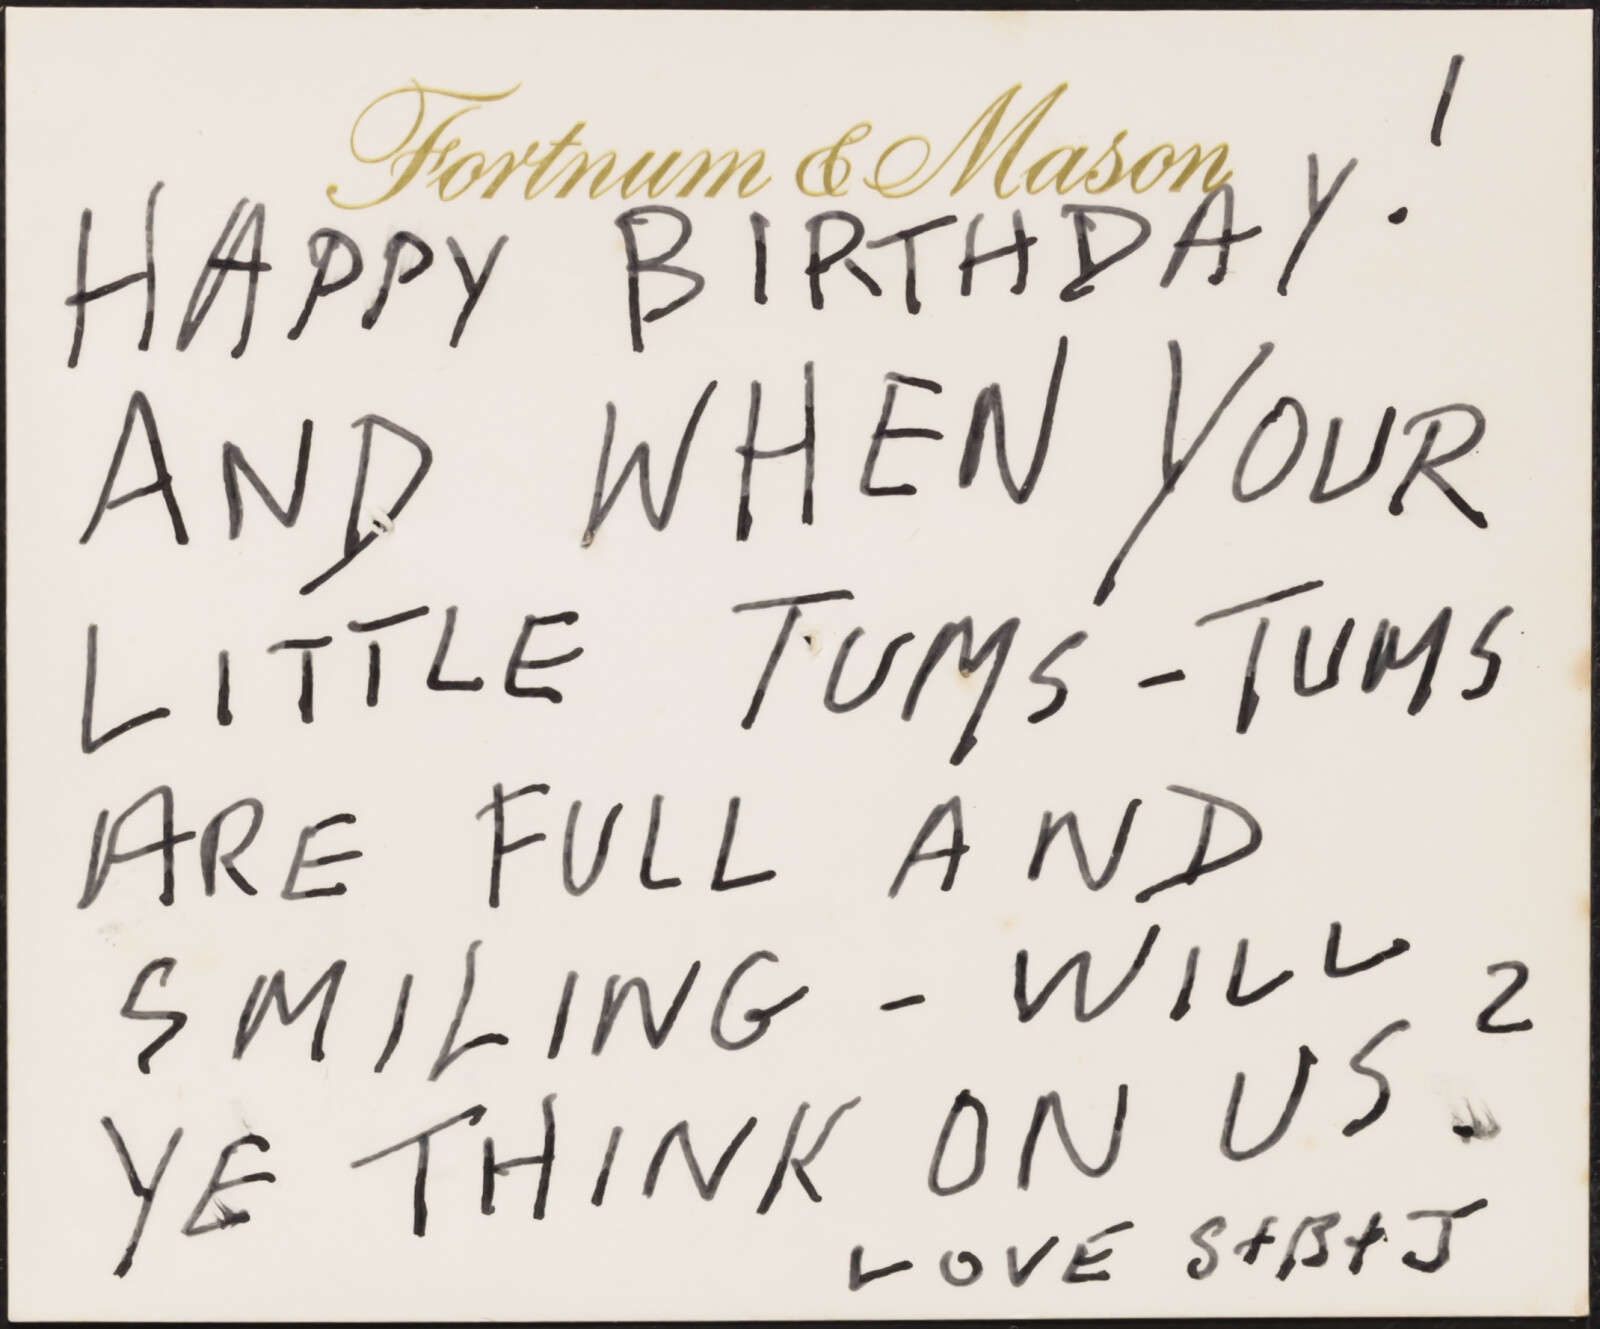 Fortnum & Mason
HAPPY BIRTHDAY!
AND WHEN YOUR
LITTLE TUMS-TUMS
ARE FULL AND
SMILING - WILL
YE THINK ON US?
LOVE S+B+J